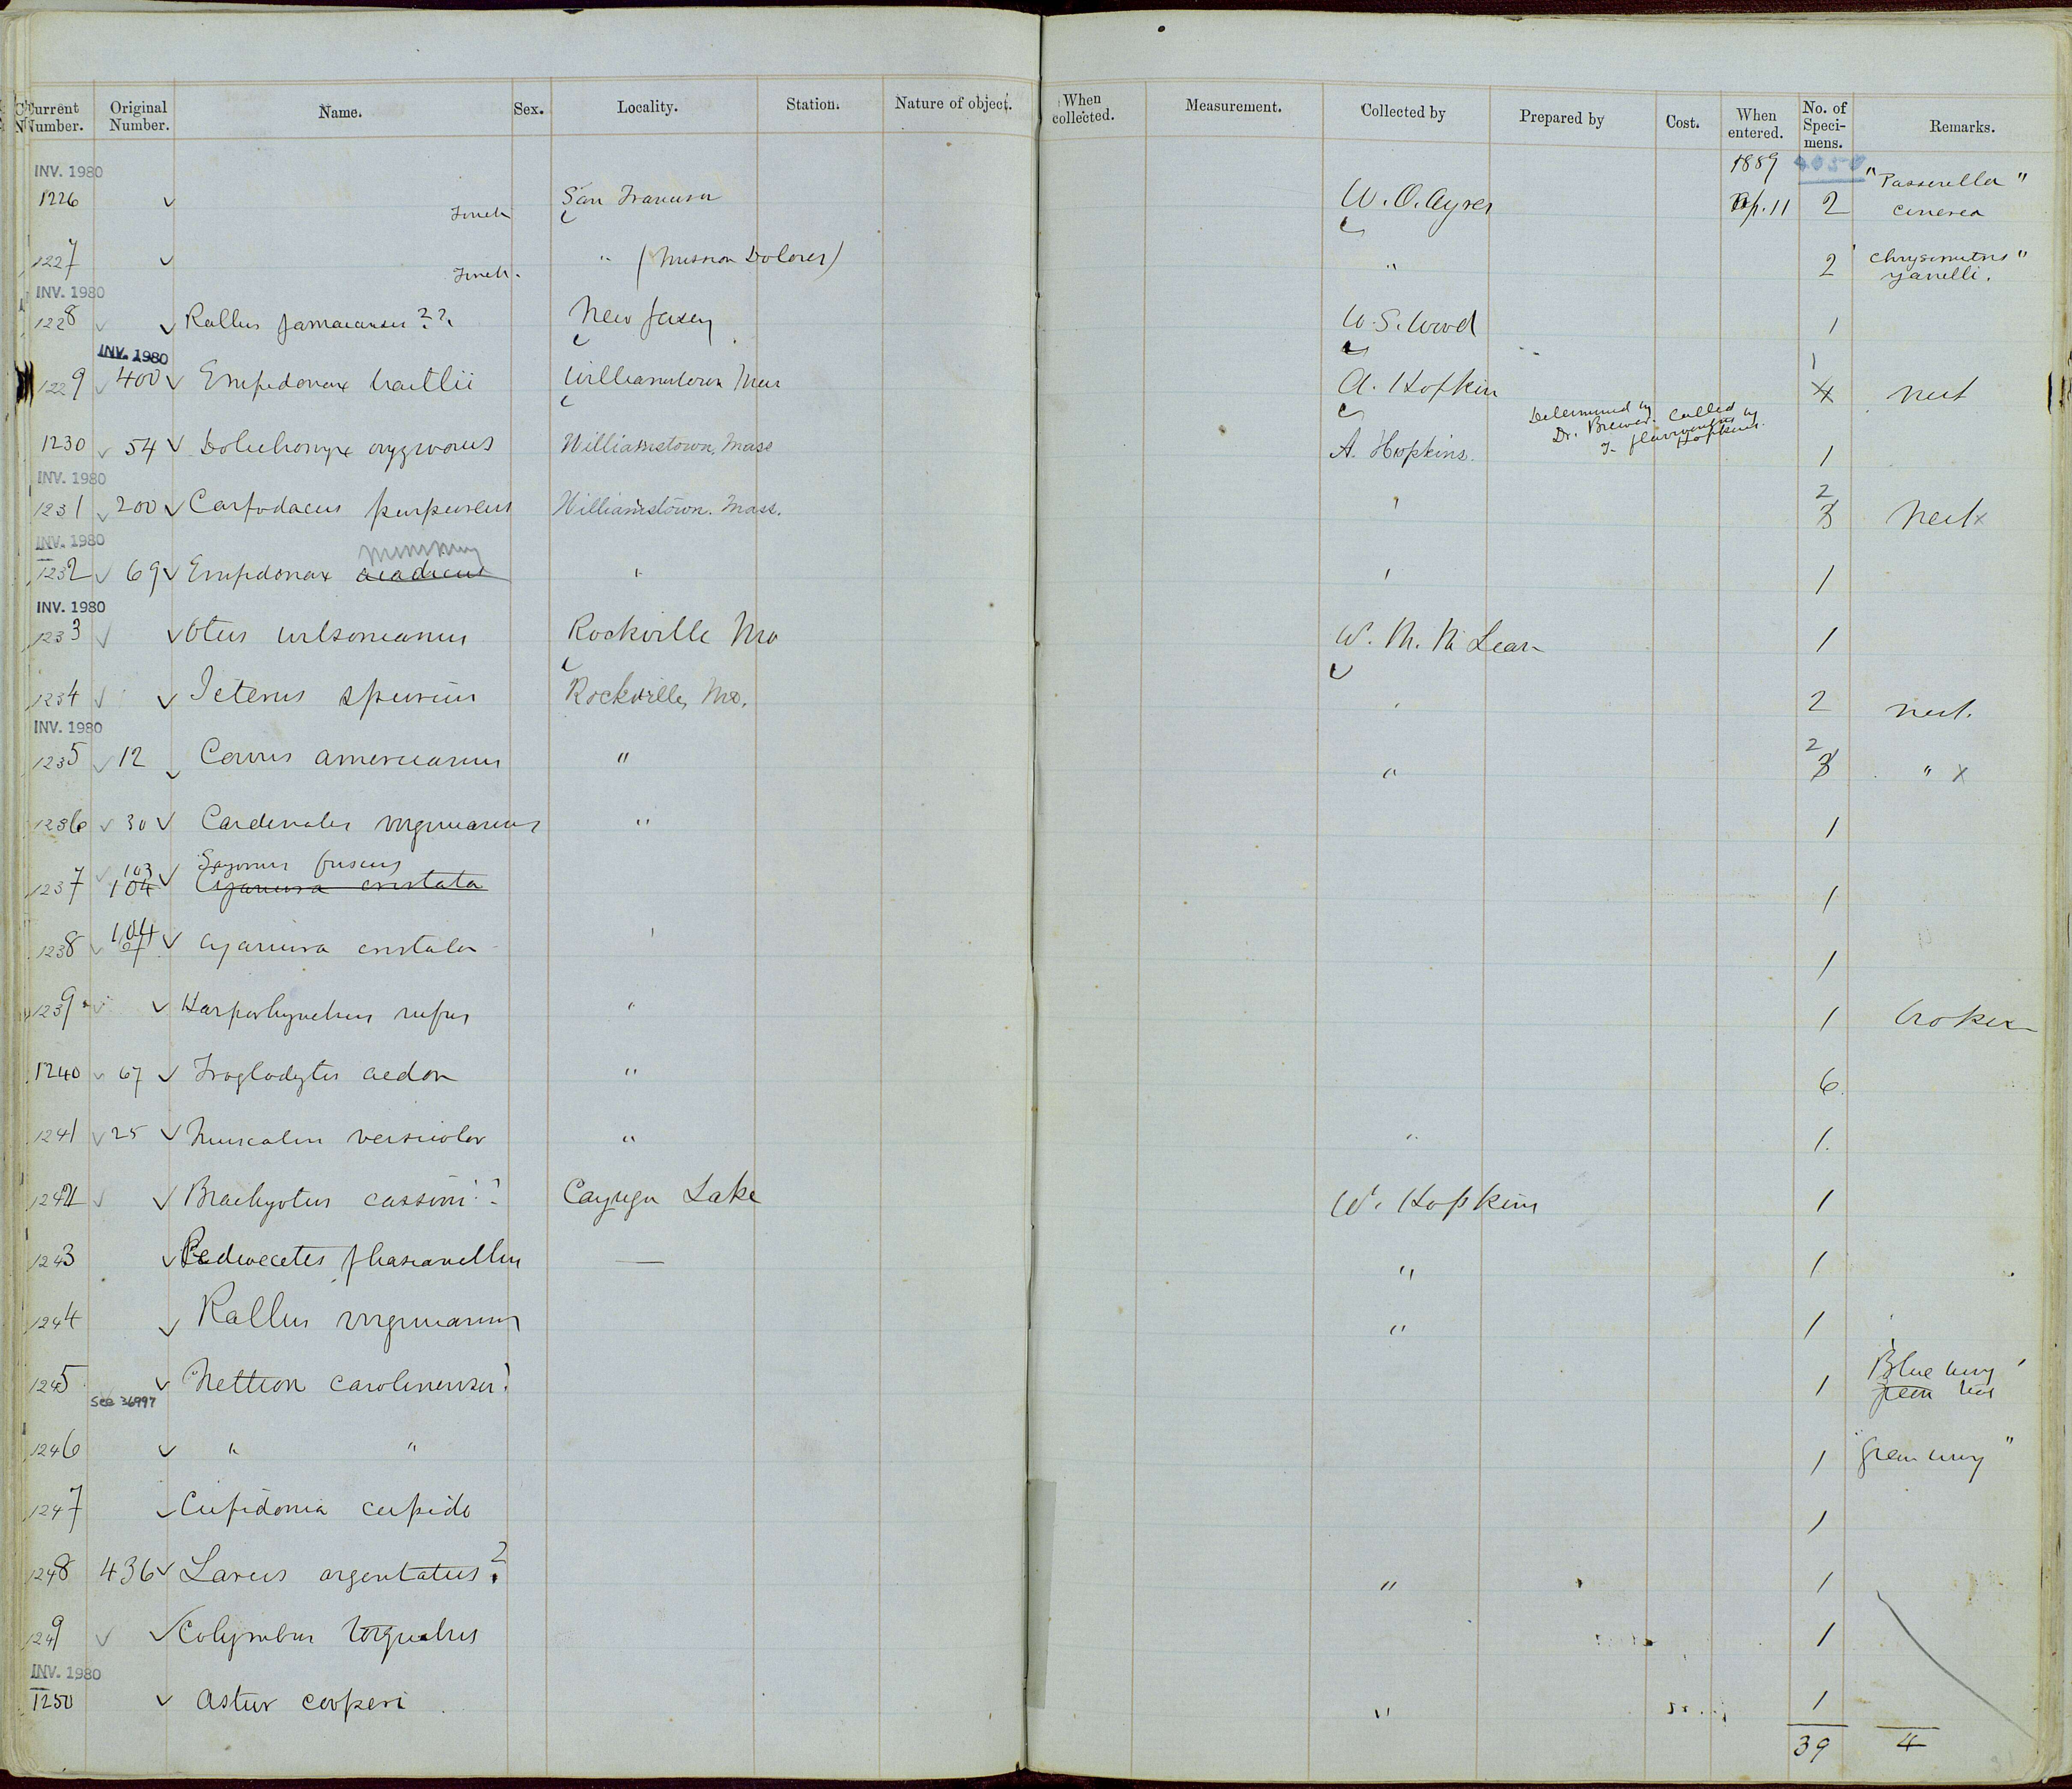 Current Number. Original Number. Name. Sex. Locality. Station. Nature of object. When collected. Measurement. Collected by Prepared by Cost. When entered. No. of Speci-mens. Remarks.
1889
INV. 1980
1226 Finch San Francisco W. O. Ayres Ap. 11 2 "Passerella" cinerea
1227 Finch. " (Mission Dolores) " 2 "Chrysomitris" yarrelli.
INV. 1980
1228 Rallus jamaicensis?? New Jersey W. S. Wood 1
INV. 1980
1229 400 Empidonax traillii Williamstown Mass A. Hopkins 1 4 nest
Determined by Dr. Brewer. Called T. flaviventris by Hopkins.
1230 54 Dolichonyx oryzivorus Williamstown, Mass A. Hopkins. 1
INV. 1980
1231 200 Carpodacus purpureus Williamstown. Mass. " 2 3 Nest x
INV. 1980
1232 69 Empidonax acadicus minimus " " 1
INV. 1980
1233 Otus wilsonianus Rockville Mo W. M. McLean 1
1234 Icterus spurius Rockville, Mo. " 2 nest.
INV. 1980
1235 12 Corvus americanus " " 2 3 " x
1236 30 Cardinalis virginianus " 1
1237 103 104 Sayornis fuscus Cyanura cristata 1
1238 104 67 Cyanura cristata " 1
1239 Harporhynchus rufus " 1 broken
1240 67 Troglodytes aedon " 6
1241 25 Quiscalus versicolor " " 1.
1242 Brachyotus cassini? Cayuga Lake W. Hopkins 1
1243 Pedioecetes phasianellus — " 1
1244 Rallus virginianus " 1
1245 Nettion carolinensis? 1 "Blue wing" green
See 36997
1246 " " 1 "Green wing"
1247 Cupidonia cupido 1
1248 436 Larus argentatus? " 1
1249 Colymbus torquatus 1
INV. 1980
1250 Astur cooperi " 1
39 4